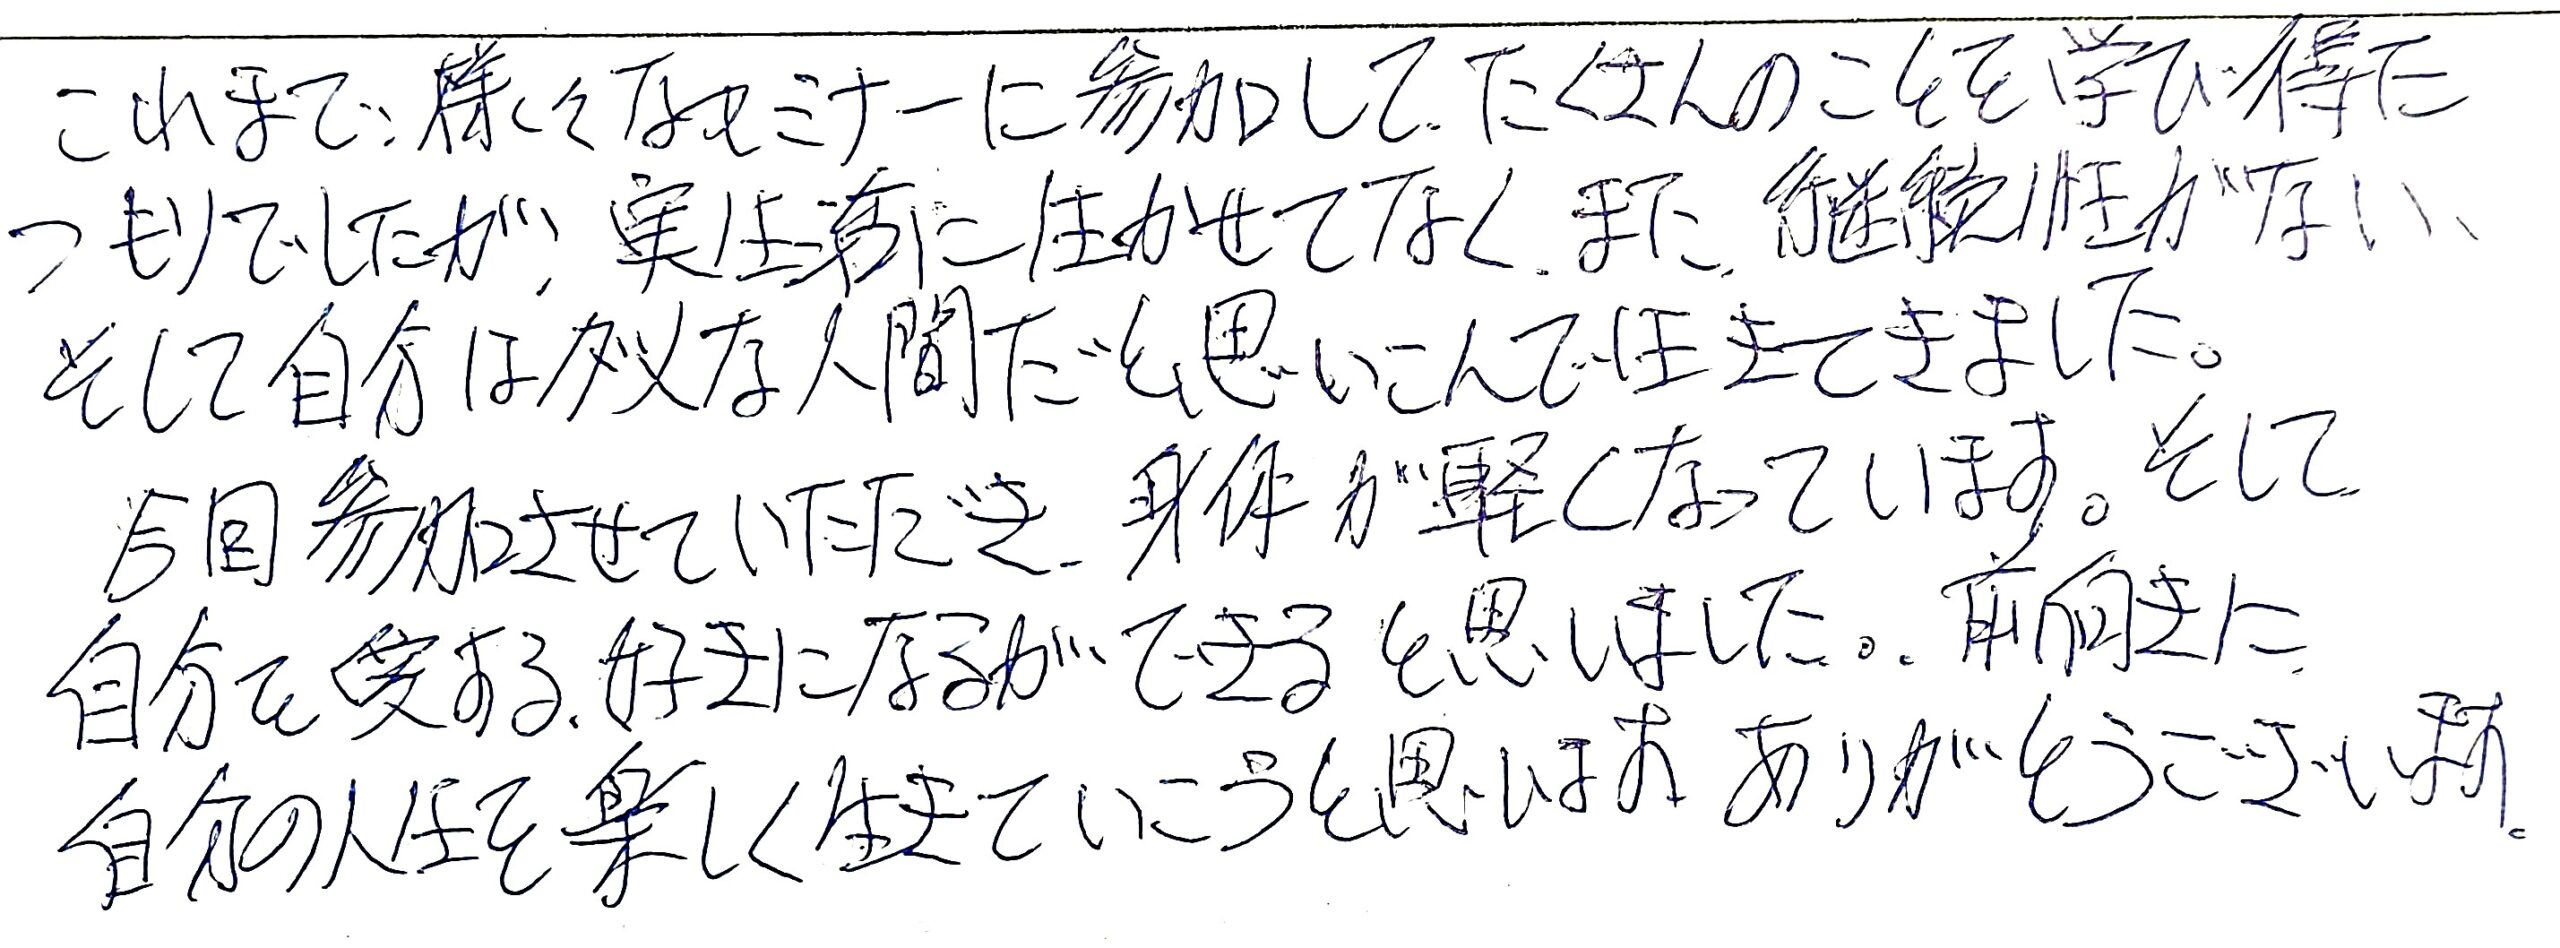 これまで、様々なセミナーに参加して、たくさんのことを学び得た
つもりでしたが、実生活に生かせてなく、また、継続性がない、
そして自分はダメな人間だと思いこんで生きてきました。
今回参加させていただき、身体が軽くなっています。そして
自分を愛する、好きになるができると思いました。前向きに
自分の人生を楽しく生きていこうと思います ありがとうございます。